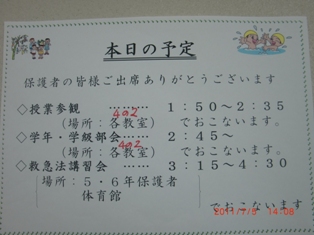 本日の予定
保護者の皆様ご出席ありがとうございます
◇授業参観 ……… 1:50～2:35
402
(場所:各教室) でおこないます。
◇学年・学級部会 ……… 2:45～
402
(場所:各教室) でおこないます。
◇救急法講習会 ……… 3:15～4:30
場所:5・6年保護者
体育館 でおこないます
2011/7/5 14:08